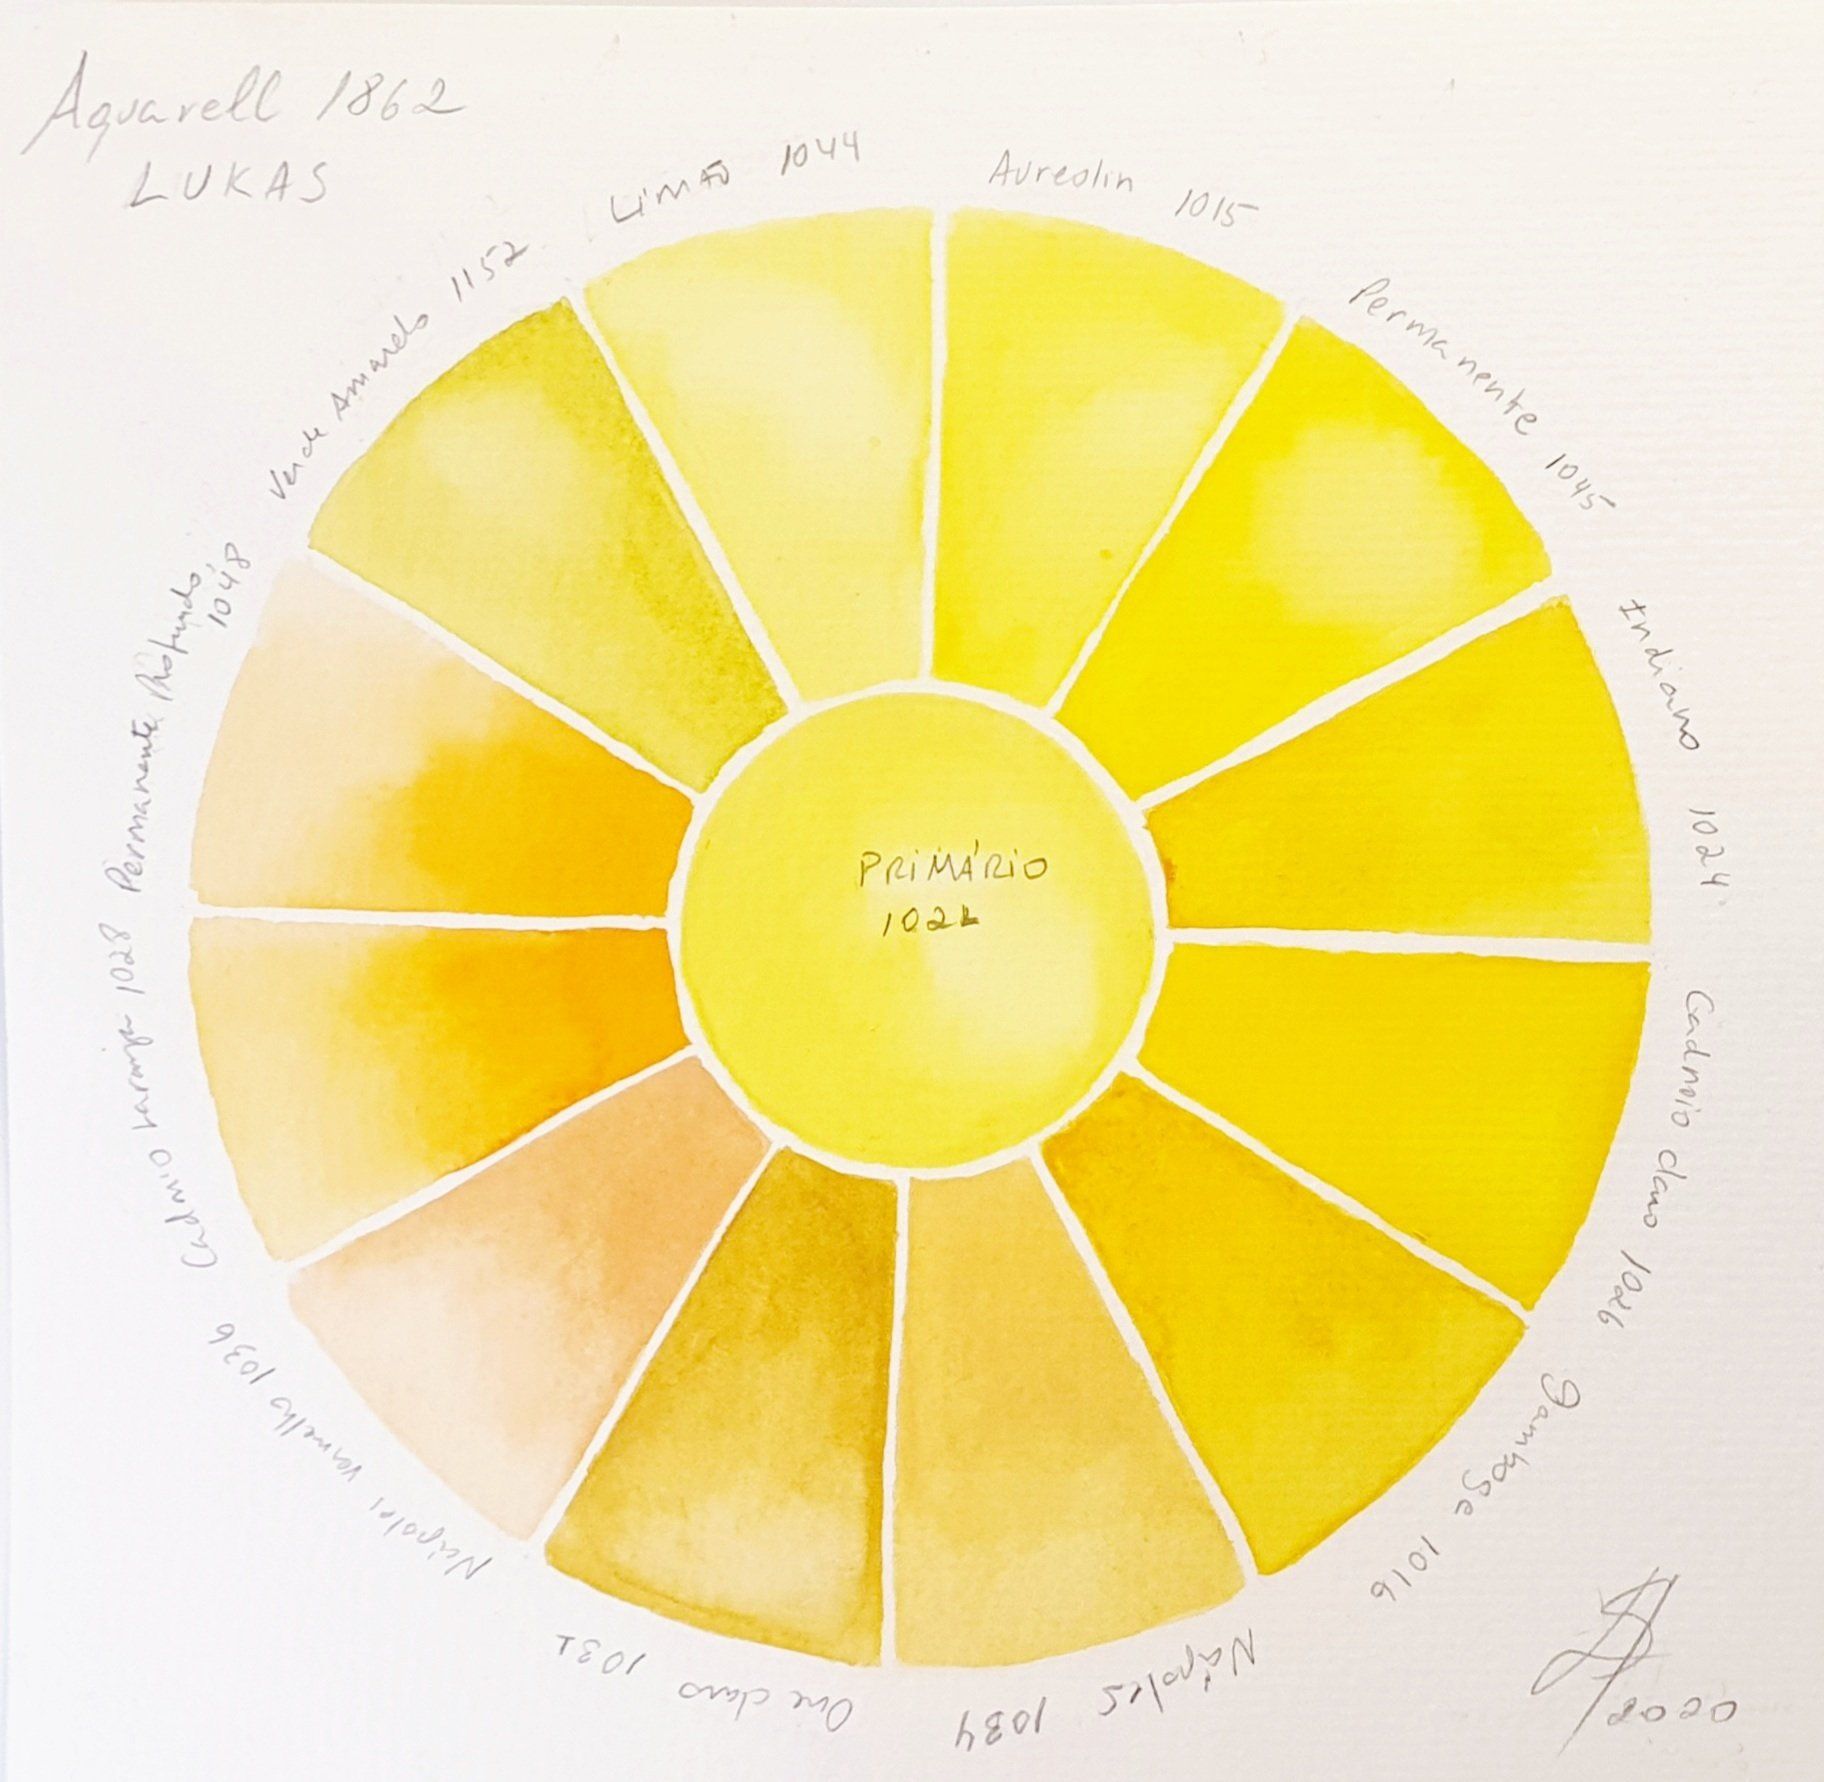 Aquarell 1862
LUKAS
Limão 1044
Aureolin 1015
Permanente 1045
Indiano 1024
Cadmio claro 1026
Gamboge 1016
Nápoles 1034
Ocre claro 1031
Nápoles vermelho 1036
Cadmio Laranja 1028
Permanente Profundo,
1048
Verde Amarelo 1152
PRIMÁRIO